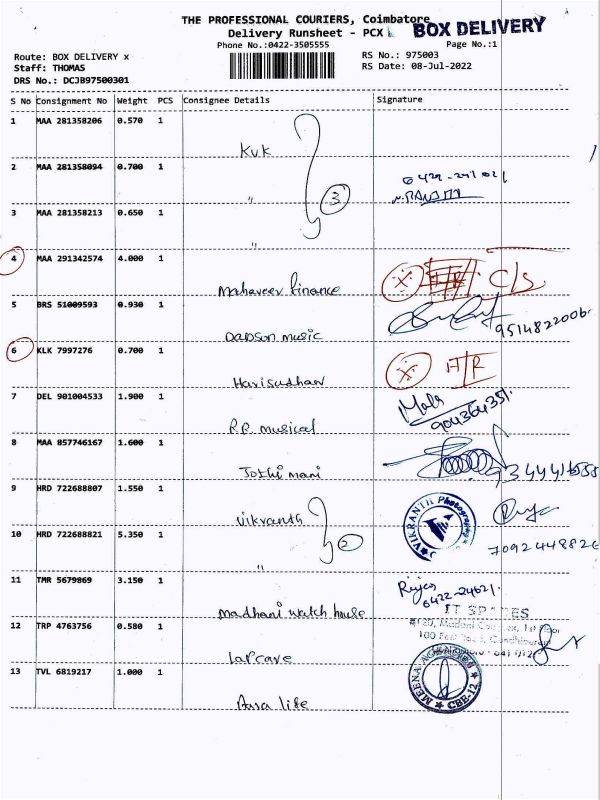 THE PROFESSIONAL COURIERS, Coimbatore
Delivery Runsheet - PCX
BOX DELIVERY
Phone No.:0422-3505555
Page No.:1
Route: BOX DELIVERY x
RS No.: 975003
Staff: THOMAS
RS Date: 08-Jul-2022
DRS No.: DCJB97500301
S No Consignment No Weight PCS Consignee Details Signature
1 MAA 281358206 0.570 1
KVK
2 MAA 281358094 0.700 1
"
3
3 MAA 281358213 0.650 1
"
4 MAA 291342574 4.000 1
Mahaveer finance
X C/S
5 BRS 51009593 0.930 1
Dadson music
9514822006
6 KLK 7997276 0.700 1
Harisudhan
X H/R
7 DEL 901004533 1.900 1
R.R. musical
Mala
8 MAA 857746167 1.600 1
Jothi mani
9 HRD 722688807 1.550 1
Vikranth
VIKRANTH Photography
10 HRD 722688821 5.350 1
"
2
11 TMR 5679869 3.150 1
Madhani watch house
12 TRP 4763756 0.580 1
100 Feet
13 TVL 6819217 1.000 1
CBE-12